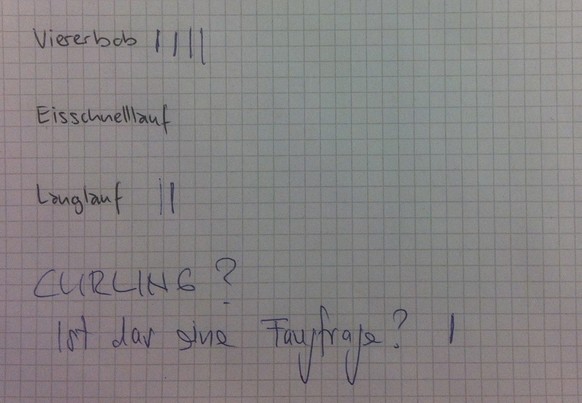 Viererbob ||||
Eisschnelllauf
Langlauf ||
CURLING?
Ist das eine Fangfrage? |